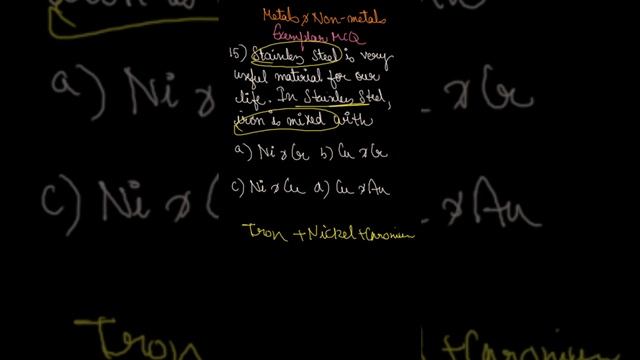 Metals & Non-metals
Exemplar MCQ
15) Stainless Steel is very
useful material for our
life. In Stainless Steel,
iron is mixed with
a) Ni & Cr b) Cu & Cr
c) Ni & Cu d) Cu & Au
Iron + Nickel + Chromium